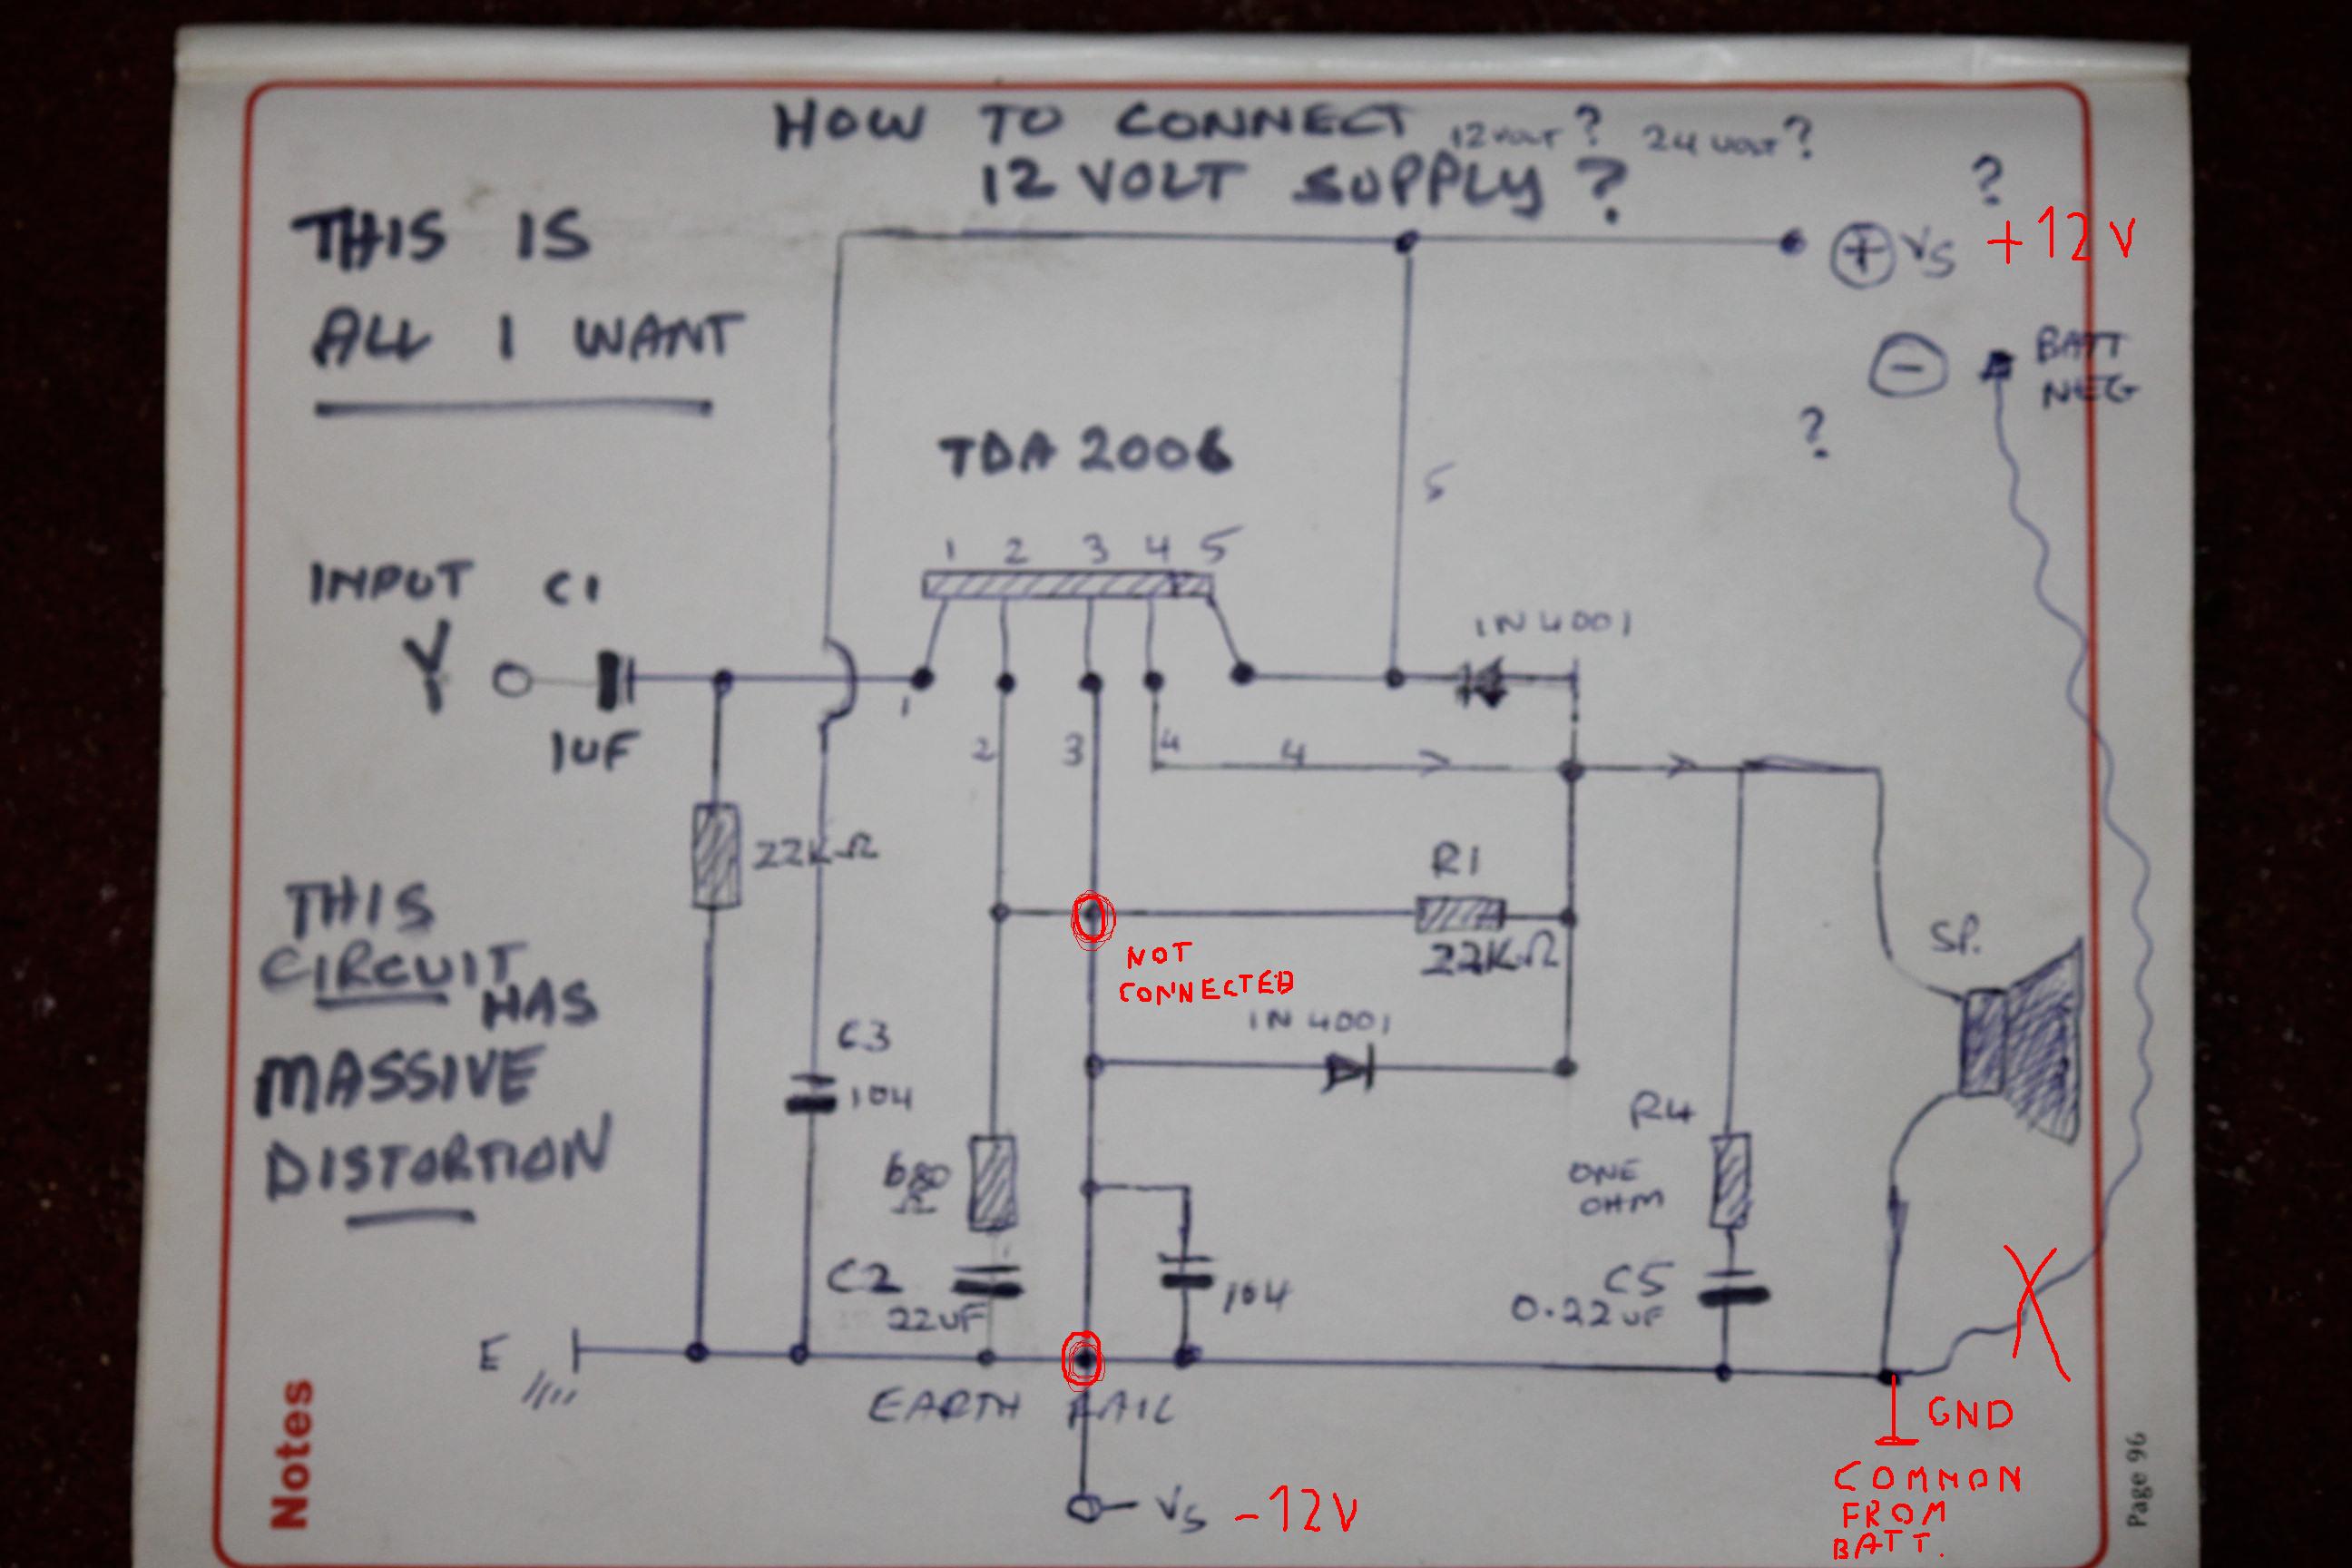 HOW TO CONNECT 12 VOLT? 24 VOLT?
12 VOLT SUPPLY?
?
THIS IS
ALL I WANT
+ VS +12V
- BATT
NEG
?
TDA 2006
5
1 2 3 4 5
INPUT C1
1N4001
1UF
1
2 3 4 4
22KΩ
R1
22KΩ
THIS
CIRCUIT HAS
MASSIVE
DISTORTION
NOT
CONNECTED
SP.
1N 4001
C3
104
R4
ONE
OHM
680
Ω
C2
22UF
104
C5
0.22UF
E
EARTH RAIL
GND
COMMON
FROM
BATT.
- VS -12V
Notes
Page 96